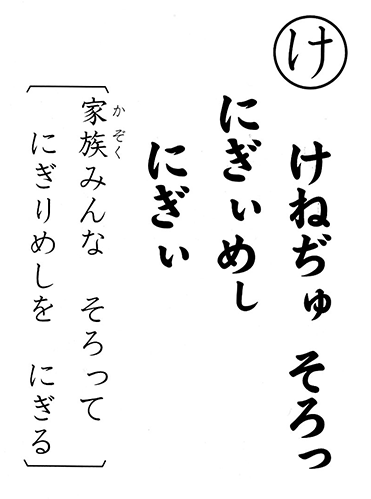 け
けねぢゅ そろっ
にぎぃめし
にぎぃ
家族みんな そろって
かぞく
にぎりめしを にぎる